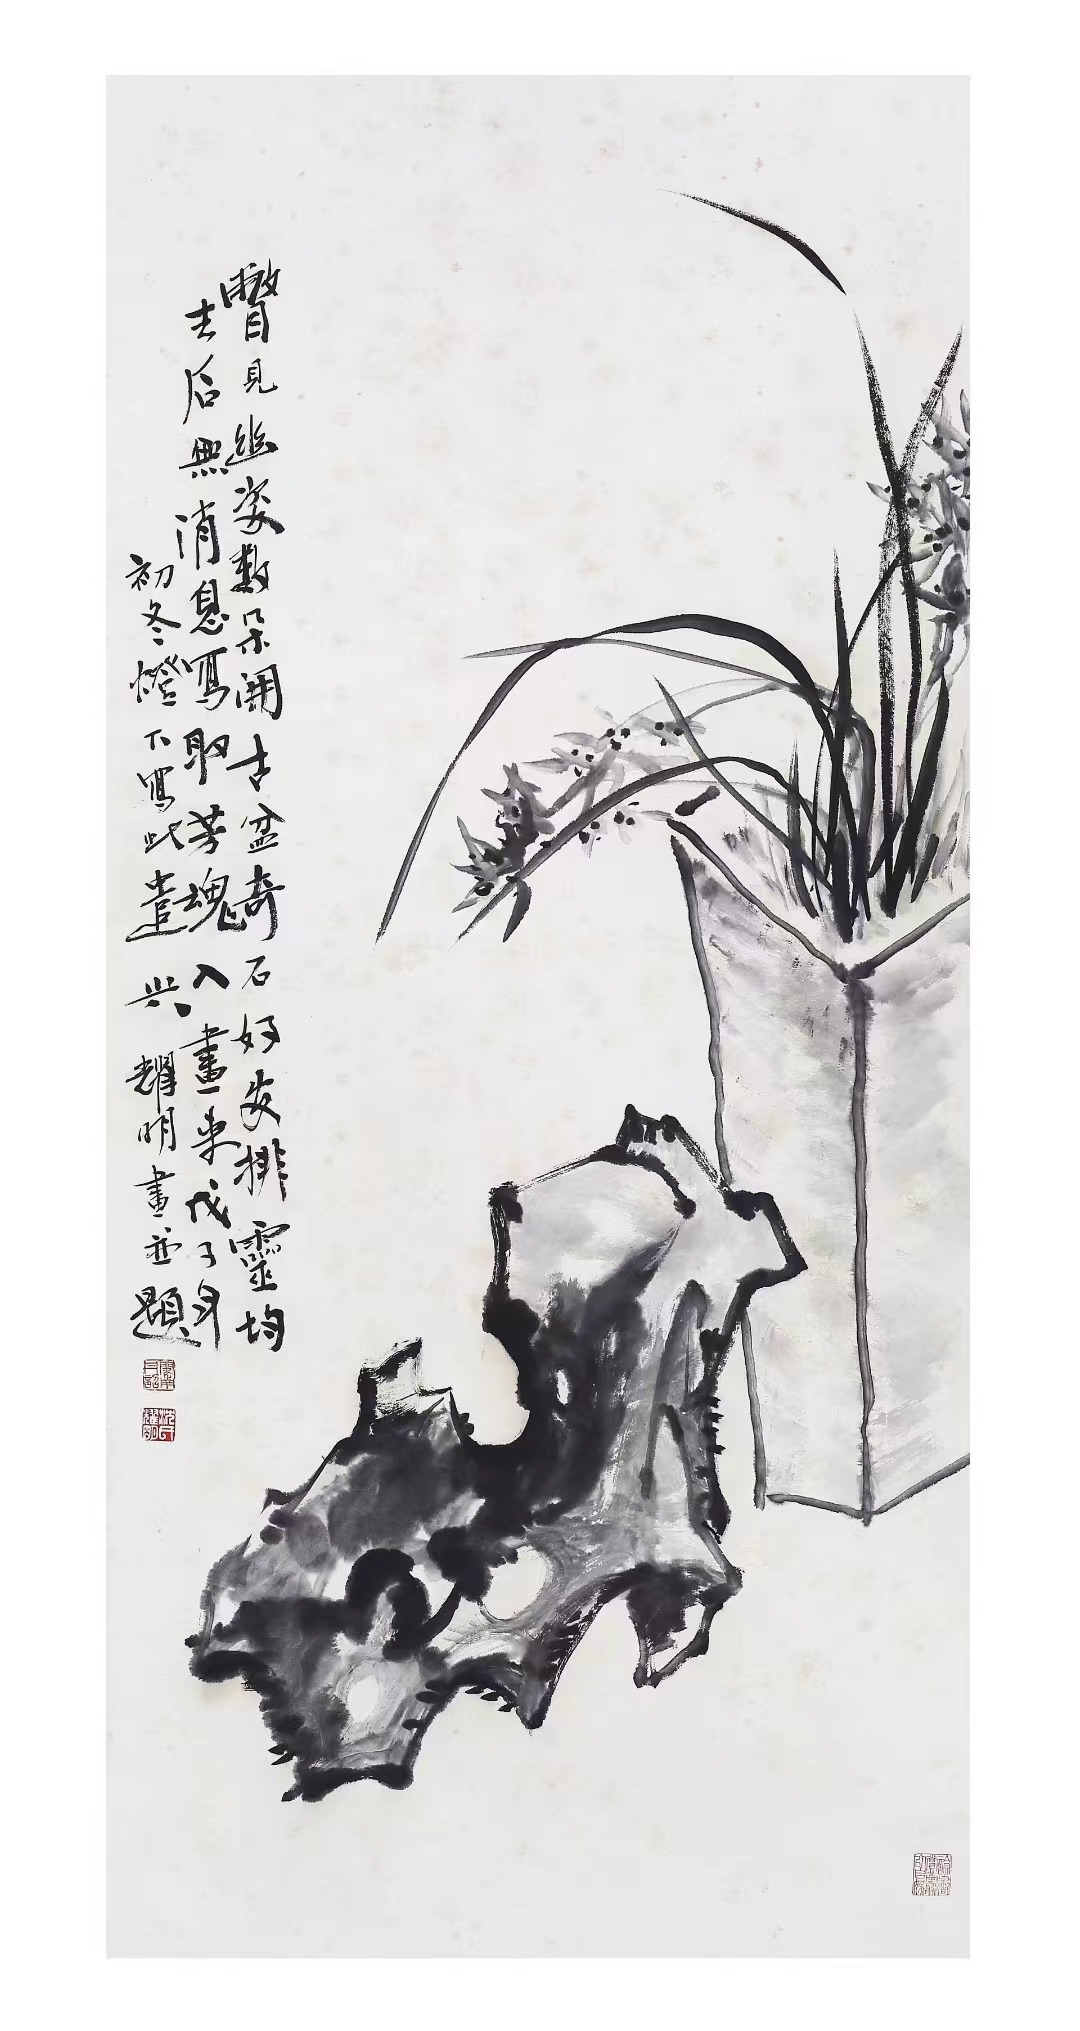 瞥見幽姿數朵開古盆奇石好安排靈均
去后無消息寫取芳魂入畫來戊子年
初冬燈下寫此遣興耀明畫並題